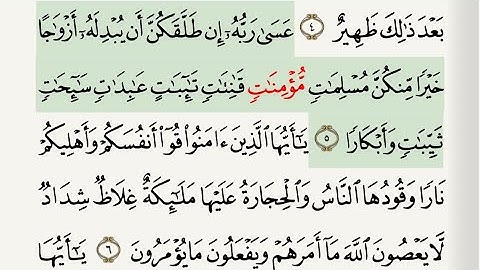 بَعْدَ ذَٰلِكَ ظَهِيرٌ ٤ عَسَىٰ رَبُّهُۥٓ إِن طَلَّقَكُنَّ أَن يُبْدِلَهُۥٓ أَزْوَٰجًا
خَيْرًا مِّنكُنَّ مُسْلِمَٰتٍ مُّؤْمِنَٰتٍ قَٰنِتَٰتٍ تَٰٓئِبَٰتٍ عَٰبِدَٰتٍ سَٰٓئِحَٰتٍ
ثَيِّبَٰتٍ وَأَبْكَارًا ٥ يَٰٓأَيُّهَا ٱلَّذِينَ ءَامَنُوا۟ قُوٓا۟ أَنفُسَكُمْ وَأَهْلِيكُمْ
نَارًا وَقُودُهَا ٱلنَّاسُ وَٱلْحِجَارَةُ عَلَيْهَا مَلَٰٓئِكَةٌ غِلَاظٌ شِدَادٌ
لَّا يَعْصُونَ ٱللَّهَ مَآ أَمَرَهُمْ وَيَفْعَلُونَ مَا يُؤْمَرُونَ ٦ يَٰٓأَيُّهَا